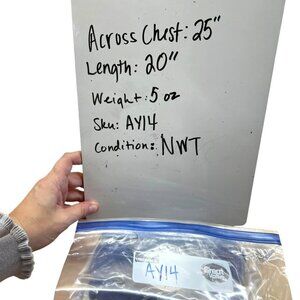 Across Chest: 25"
Length: 20"
Weight: 5 oz
Sku: AY14
Condition: NWT
AY14
Great